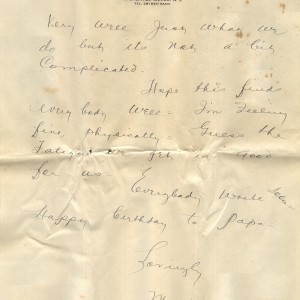 Very well just what we
do but its not a bit
Complicated.
Hope this finds
everybody well. I'm feeling
fine physically. Guess the
fatigue we get is good
for us.
Everybody write soon.
Happy birthday to Papa.
Lovingly
M